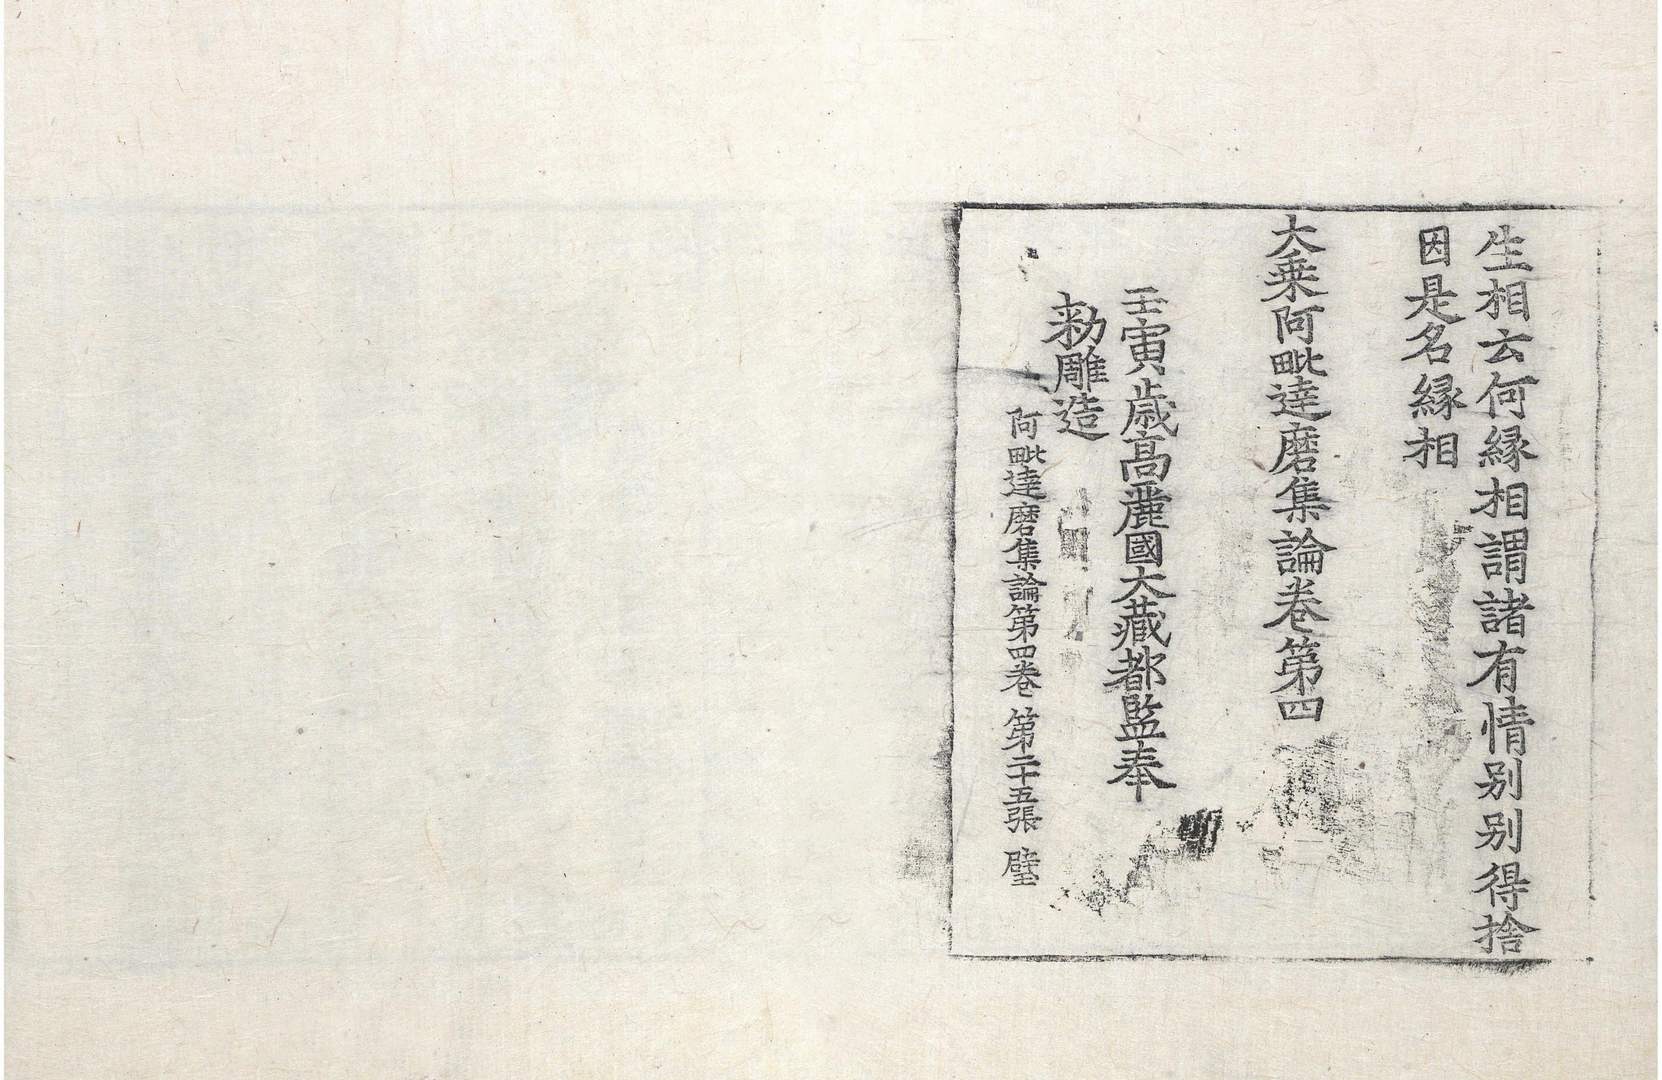 生相云何縁相謂諸有情别别得捨
因是名縁相
大乗阿毗達磨集論卷第四
壬寅歲高麗國大藏都監奉
勑雕造
阿毗達磨集論第四卷 第二十五張 壁